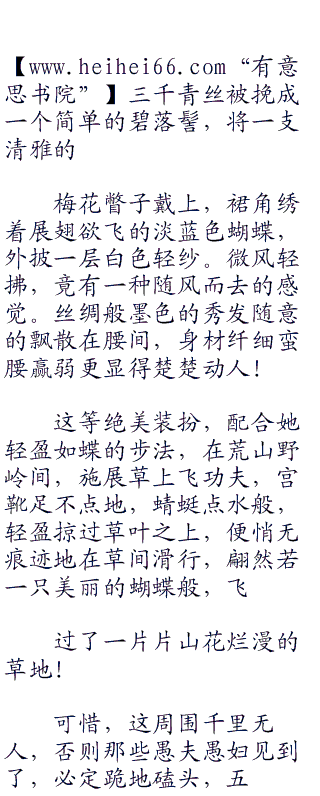 【www.heihei66.com“有意
思书院”】三千青丝被挽成
一个简单的碧落髻，将一支
清雅的
梅花瞥子戴上，裙角绣
着展翅欲飞的淡蓝色蝴蝶，
外披一层白色轻纱。微风轻
拂，竟有一种随风而去的感
觉。丝绸般墨色的秀发随意
的飘散在腰间，身材纤细蛮
腰赢弱更显得楚楚动人！
这等绝美装扮，配合她
轻盈如蝶的步法，在荒山野
岭间，施展草上飞功夫，宫
靴足不点地，蜻蜓点水般，
轻盈掠过草叶之上，便悄无
痕迹地在草间滑行，翩然若
一只美丽的蝴蝶般，飞
过了一片片山花烂漫的
草地！
可惜，这周围千里无
人，否则那些愚夫愚妇见到
了，必定跪地磕头，五